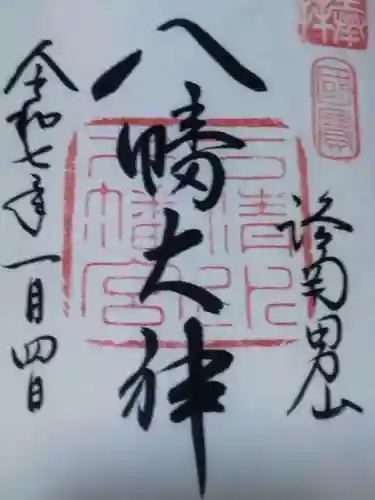 奉拝
国宝
詣男山
八幡大神
石清水八幡宮
令和七年一月四日